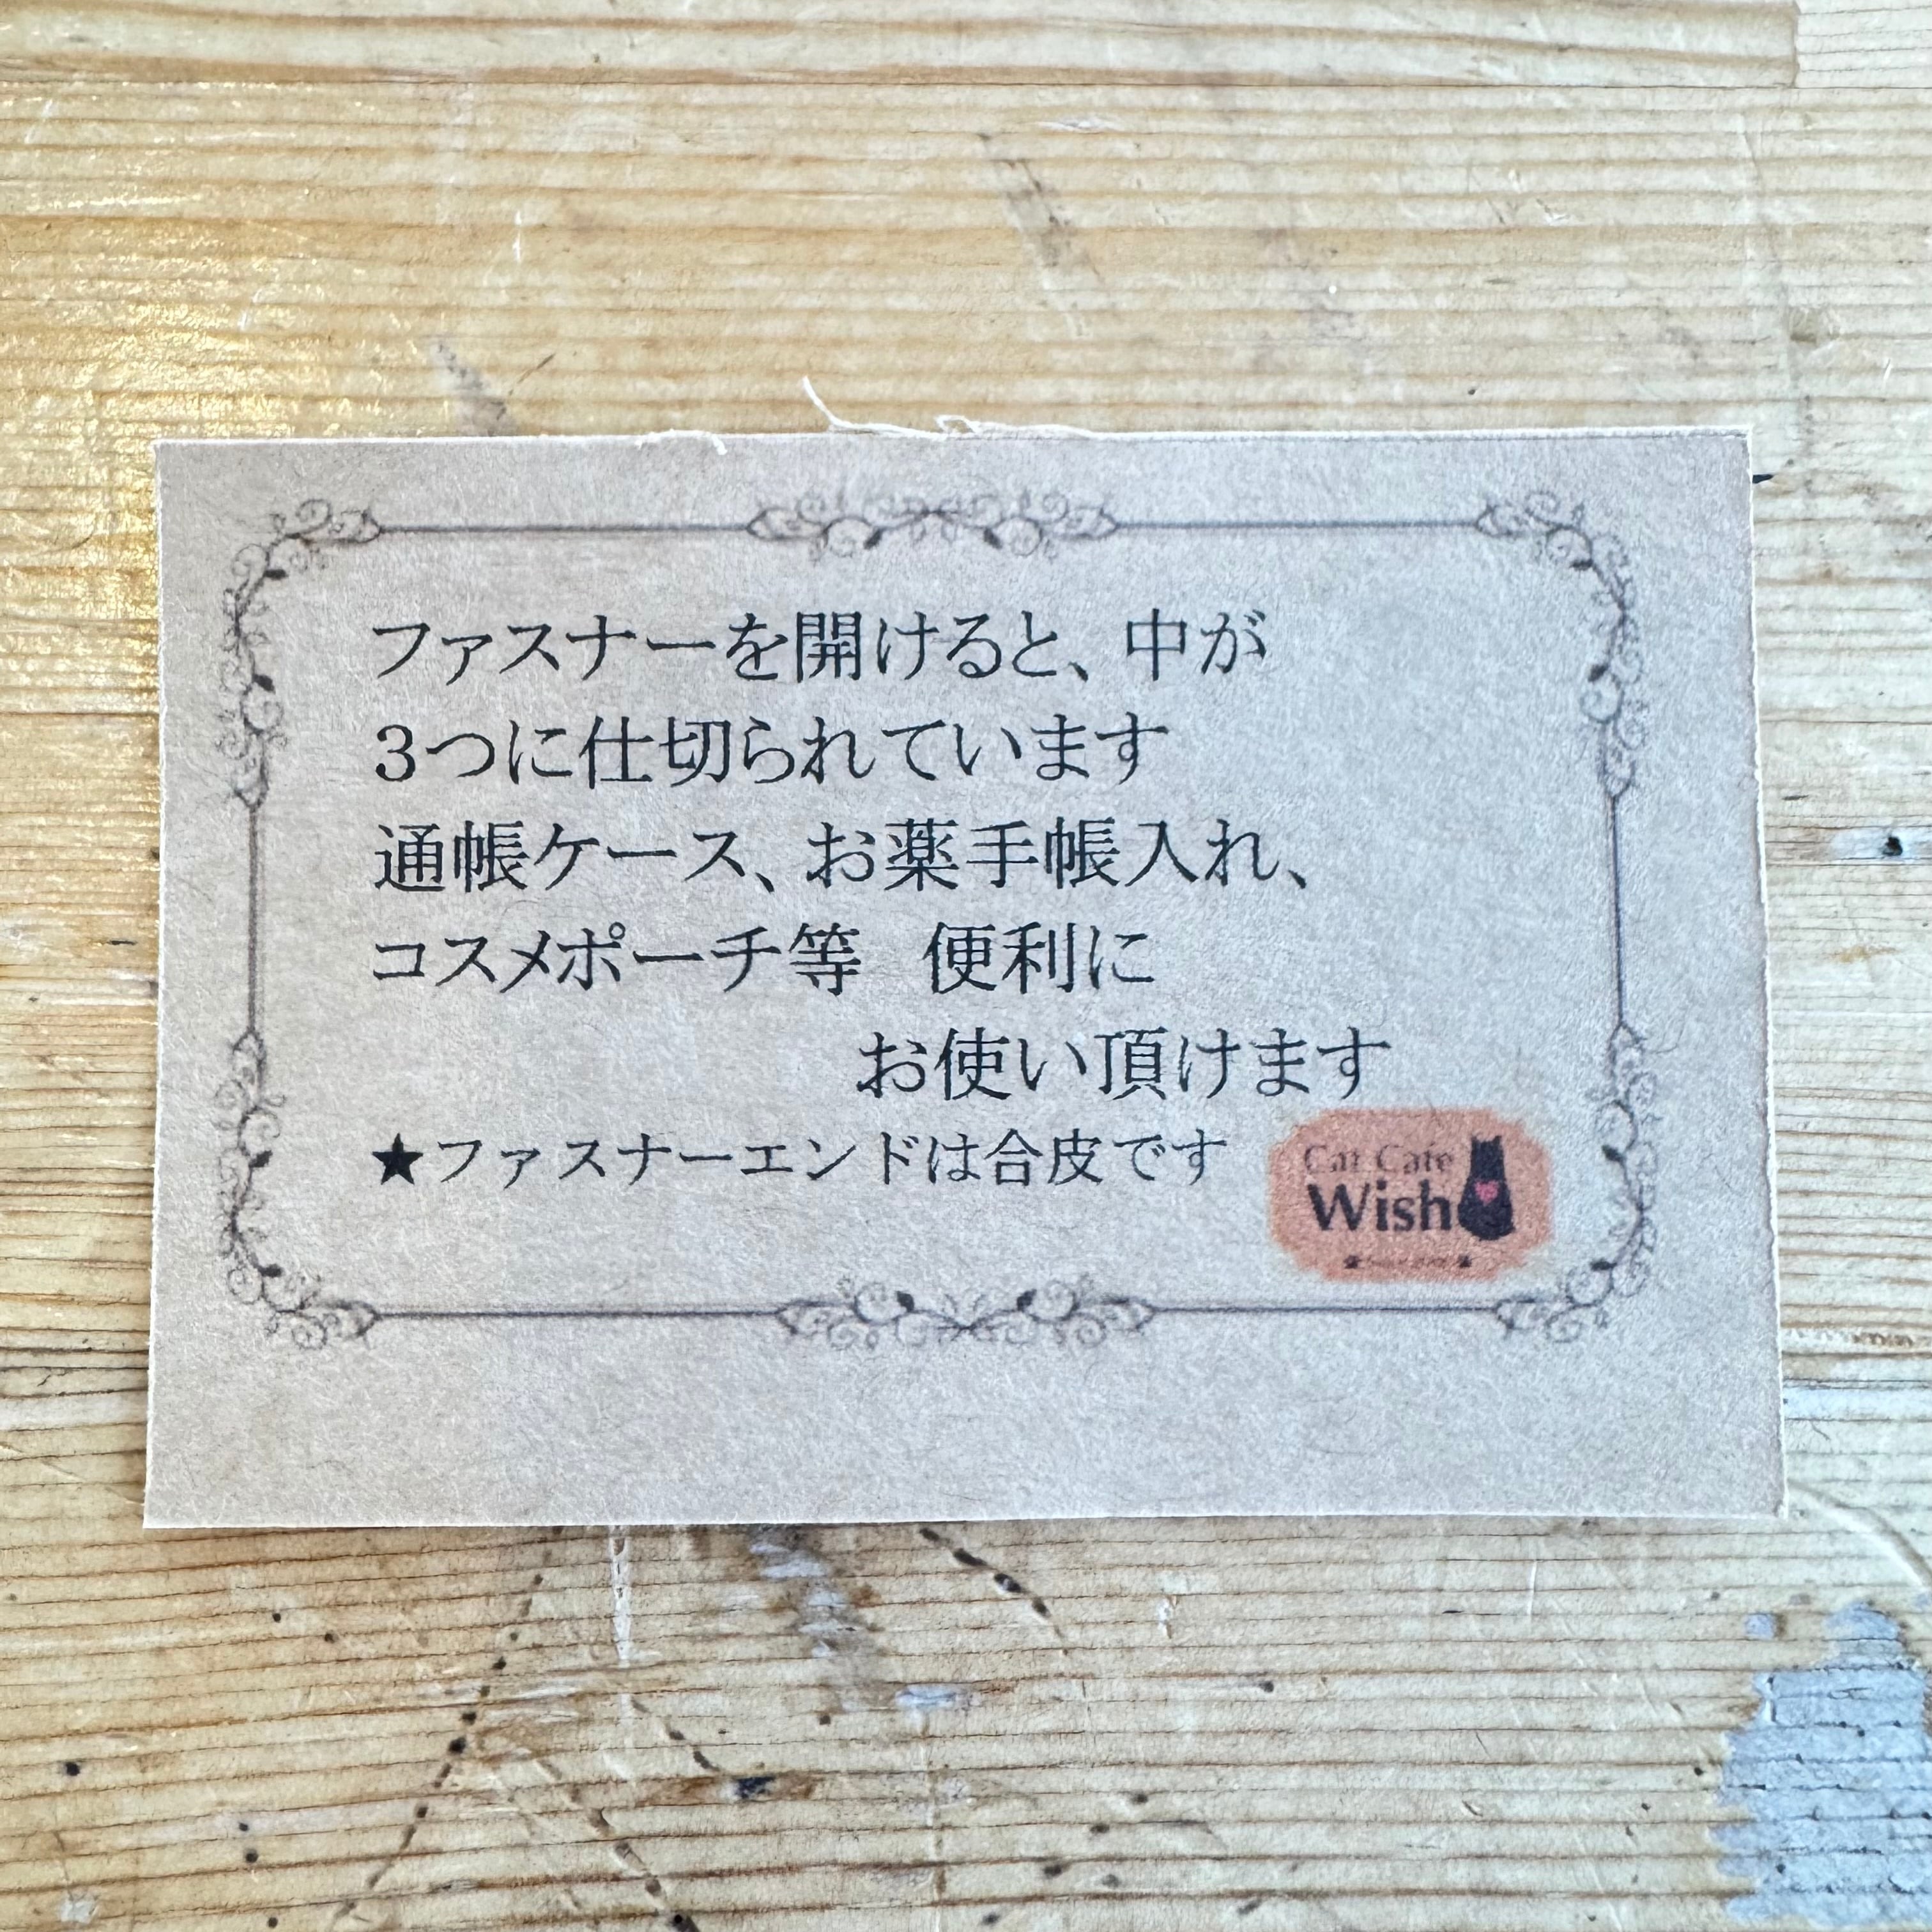 ファスナーを開けると、中が
3つに仕切られています
通帳ケース、お薬手帳入れ、
コスメポーチ等　便利に
お使い頂けます
★ファスナーエンドは合皮です
Cat Cafe
Wish